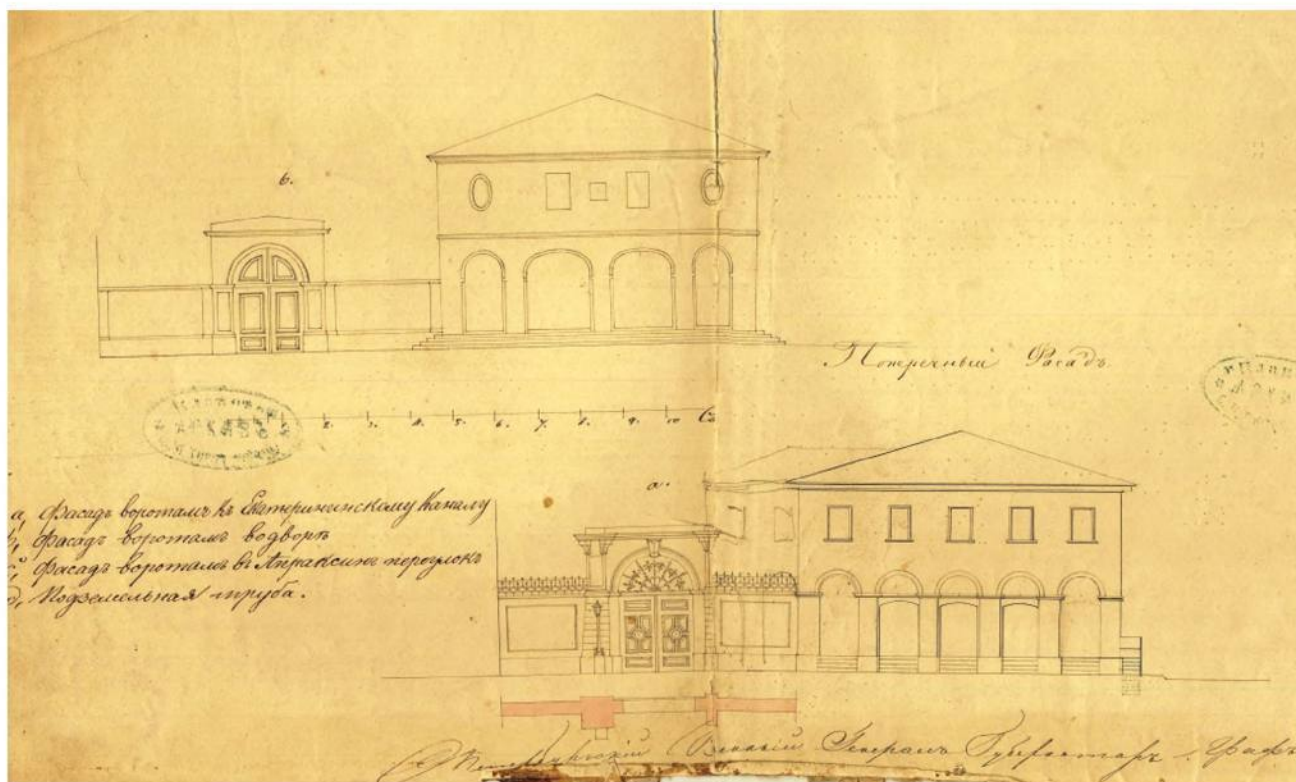 б.
Поперечный Фасадъ.
2. 3. 4. 5. 6. 7. 8. 9. 10 Са
а.
а, Фасадъ воротамъ къ Екатерининскому Каналу
Фасадъ воротамъ во дворѣ
Фасадъ воротамъ въ Апраксинъ переулокъ
Подземельная труба.
Военный Генералъ Губернаторъ Графъ